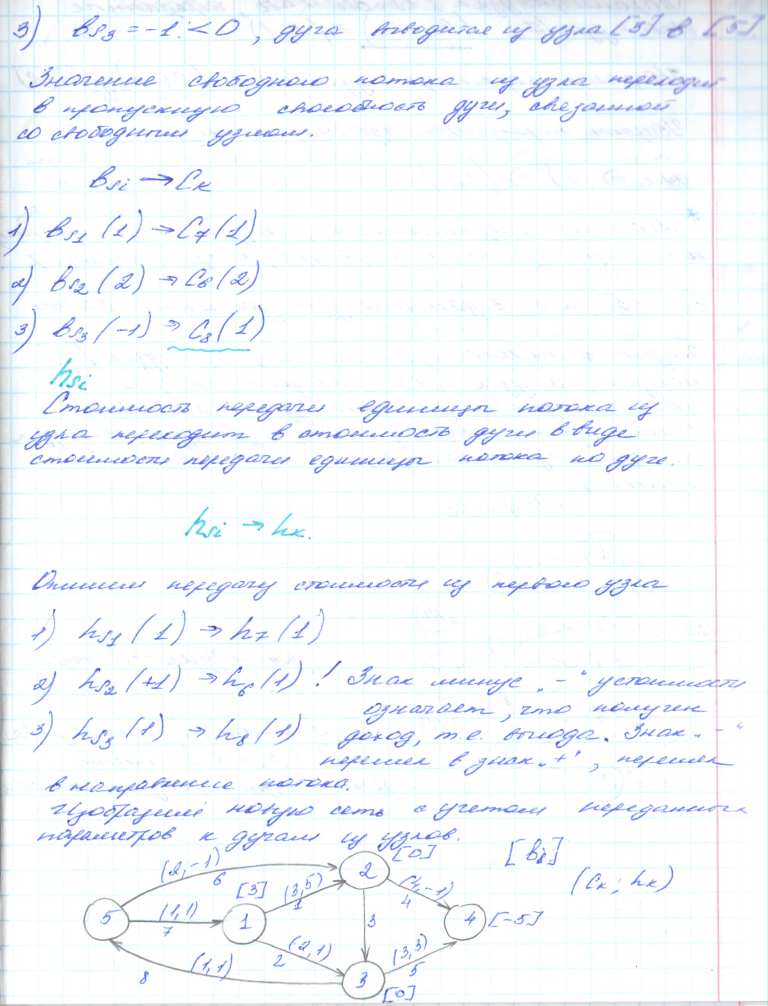 3) bs3 = -1 < 0, дуга выводится из узла [3] в [5]
Значение свободного потока из узла переходит
в пропускную способность дуги, связанной
со свободным узлом.
bsi → Cк
1) bs1 (1) → C7 (1)
2) bs2 (2) → C6 (2)
3) bs3 (-1) → C8 (1)
hsi
Стоимость передачи единицы потока из
узла переходит в стоимость дуги в виде
стоимости передачи единицы потока по дуге.
hsi → hк.
Опишем передачу стоимости из первого узла
1) hs1 (1) → h7 (1)
2) hs2 (+1) → h6 (1) ! Знак минус „-“ у стоимости
означает, что получен
3) hs3 (1) → h8 (1) доход, т.е. выгода. Знак „-“
перешел в знак „+“, перешел
в направление потока.
Изобразим новую сеть с учетом переданных
параметров к дугам из узлов.
(2,-1) 2 [0] [bi]
6 [3] (3,5) (4,-1) (Cк; hк)
5 (1,1) 1 1 4 4 [-5]
7 3
2 (2,1) (3,3)
8 (1,1) 3 5
[0]